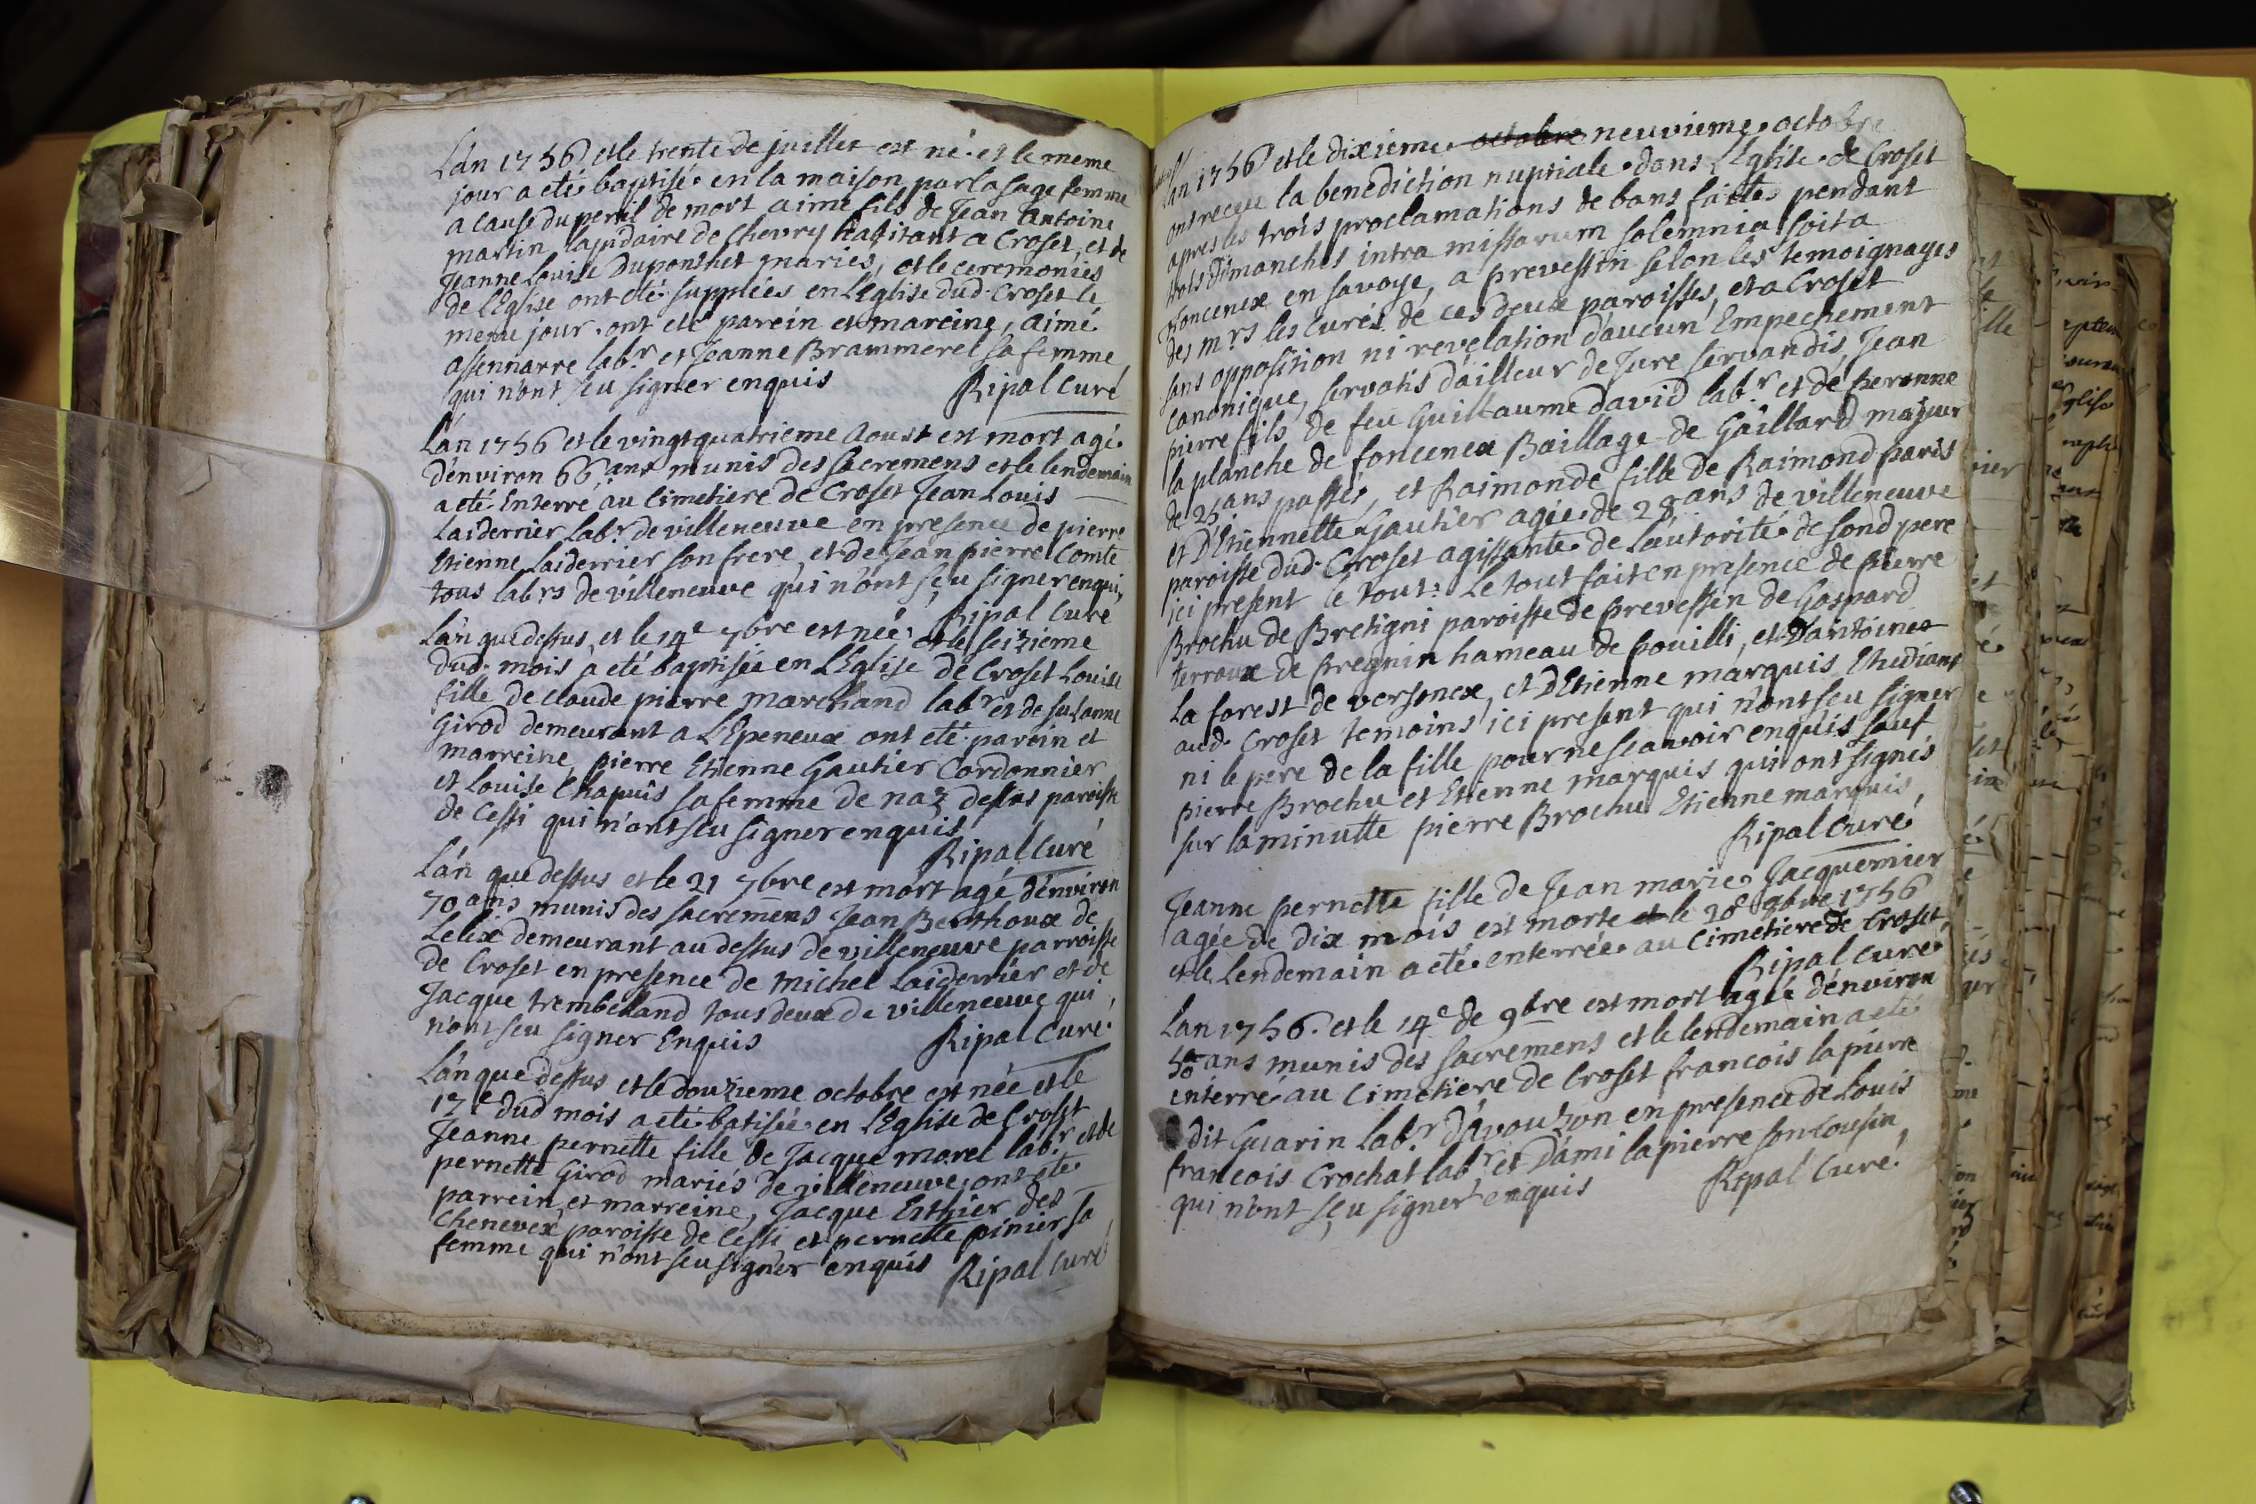 Lan 1756 et le trente de juillet est né et le meme
jour a eté baptisé en la maison par la sage femme
a cause du peril de mort aimé fils de Jean Antoine
martin de Chevry habitant a Croset, et de
Jeanne Louise Duponthet mariés, et le ceremonies
de L'Eglise ont eté supplées en L'Eglise dud. Croset le
meme jour. ont eté parein et mareine, aimé
assennarre lab.r et Jeanne Brammerel sa femme
qui n'ont seu signer enquis Ripal Curé
Lan 1756 et le vingt quatrieme Aoust est mort agé
d'environ 66 ans munis des sacremens et le lendemain
a eté Enterré au Cimetiere de Croset Jean Louis
Laiderrier Lab.r de villeneuve en presence de pierre
Etienne Laiderrier son frere, et de Jean pierre Comte
tous lab.rs de villeneuve qui n'ont sçeu signer enquis
Ripal Curé
Lan que dessus, et le 14e 7bre est née et le seizieme
dud. mois a eté baptisée en L'Eglise de Croset Louise
fille de claude pierre marchand lab.r et de suzanne
Girod demeurant a L'Epeneux ont eté parein et
marreine, pierre Etienne Gautier Cordonnier
et Louise Chapuis sa femme de naz dessus paroisse
de Cessi qui n'ont seu signer enquis
Ripal Curé
Lan que dessus et le 21 7bre est mort agé d'environ
70 ans munis des sacremens Jean Berthoux de
Lelix demeurant au dessus de villeneuve parroisse
de Croset en presence de michel Laiderrier et de
Jacque trembelland tous deux de villeneuve qui
n'ont seu signer Enquis Ripal Curé
Lan que dessus et le douzieme octobre est née et le
17e dud mois a eté batisée en L'Eglise de Croset
Jeanne pernette fille de Jacque morel lab.r et de
pernette Girod mariés de villeneuve, ont eté
parrein, et marreine, Jacque Esthier des
Chenevex paroisse de Cessi et pernette pinier sa
femme qui n'ont seu signer enquis Ripal Curé
Lan 1756 et le dixieme octobre neuvieme octobre
ont reçeu la benediction nuptiale dans L'Eglise de Croset
apres les trois proclamations de bans faites pendant
trois dimanches intra missarum solemnia soit a
foncenex en savoye, a prevessin selon les temoignages
des mrs les Curés de ces deux paroisses, et a Croset
sans opposition ni revelation d'aucun Empechement
Canonique, servatis d'ailleur de Jure servandis, Jean
pierre fils de feu Guillaume David lab.r et de pernne
la planche de foncenex Baillage de Gaillard majeur
de 25 ans passés, et Raimonde fille de Raimond paris
et D'Etiennette Gautier agée de 28 ans de villeneuve
paroisse dud. Croset agissante de L'autorité de sond pere
ici present le tout. Le tout fait en presence de pierre
Brochu de Bretigni paroisse de prevessin de Gaspard
terroux de pregnin hameau de pouilli, et D'antoine
La forest de versonex, et D'Etienne marquis Etudiant
aud. Croset temoins ici present qui n'ont seu signer
ni le pere de la fille pour ne scavoir enquis sauf
pierre Brochu et Etienne marquis qui ont signés
sur la minutte pierre Brochu Etienne marquis,
Ripal Curé
Jeanne pernette fille de Jean marie Jacquemier
agée de dix mois est morte et le 28 9bre 1756
et le lendemain a eté enterrée au Cimetiere de Croset
Ripal Curé
Lan 1756 et le 14e de 9bre est mort agé d'environ
ans munis des sacremens et le lendemain a eté
enterré au Cimetiere de Croset francois la pierre
dit Guarin Lab.r d'avouzon en presence de Louis
francois Crochat lab.r et D'ami la pierre son Cousin,
qui n'ont sçeu signer enquis Ripal Curé